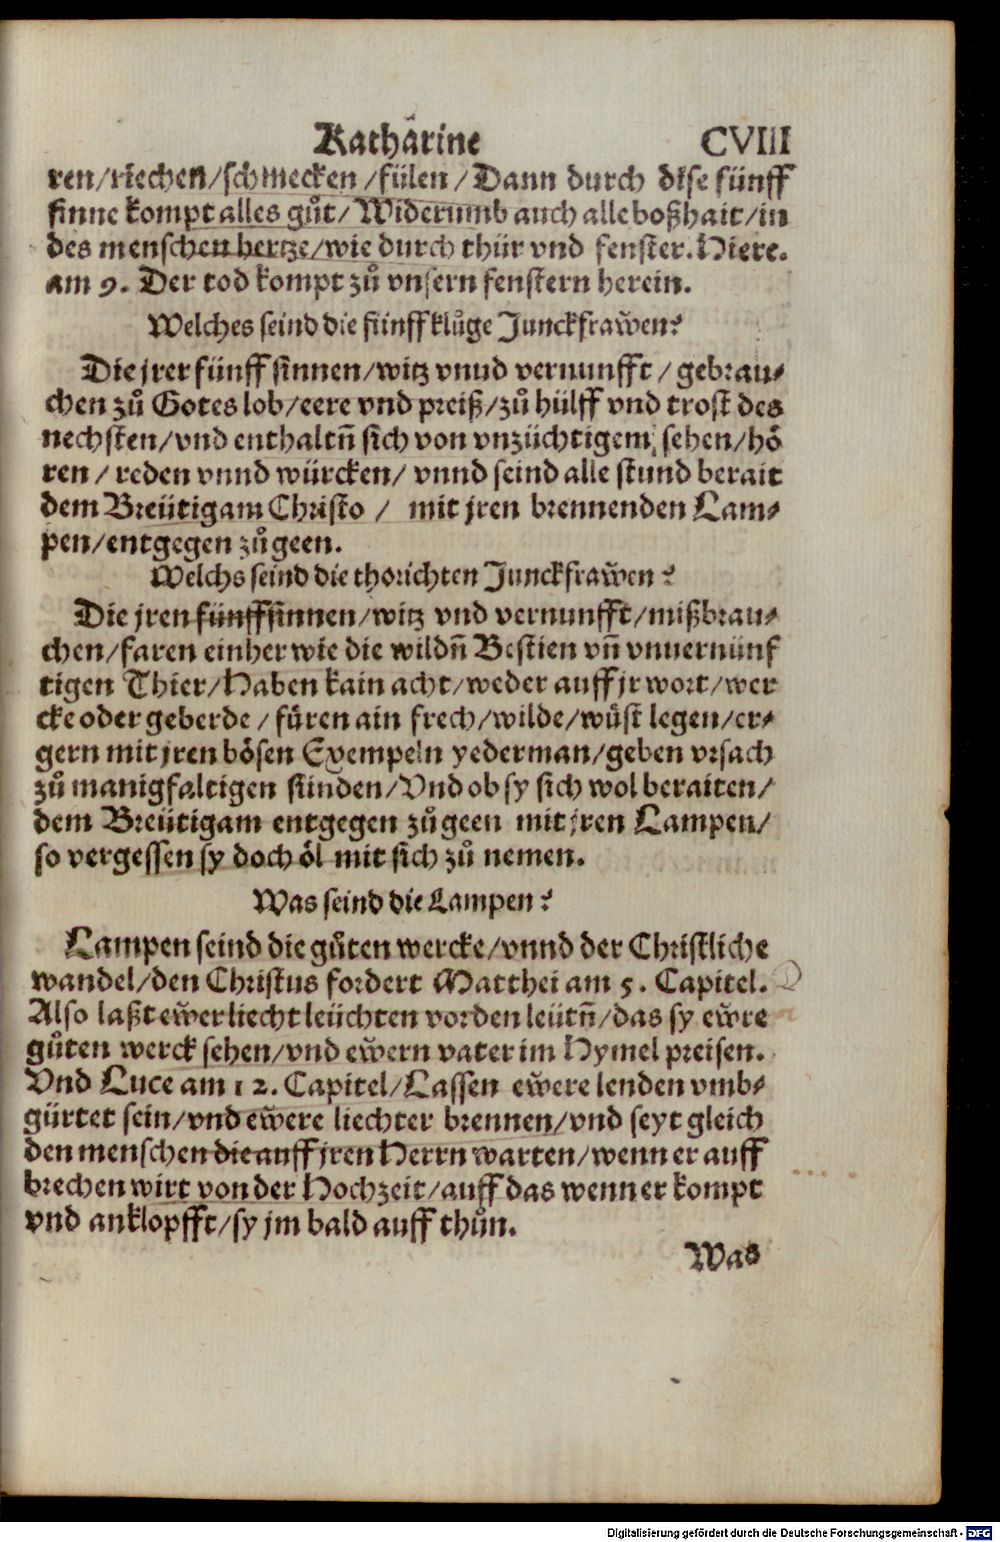 Katharine CVIII
ren/riechen/schmecken/fülen/Dann durch dise fünff
sinne kompt alles gůt/Widerumb auch alle boßhait/in
des menschen hertze/wie durch thür vnd fenster. Hiere.
am 9. Der tod kompt zů vnsern fenstern herein.
Welches seind die fünff klůge Junckfraw̃en?
Die jrer fünff sinnen/witz vnnd vernunfft/gebrau⸗
chen zů Gotes lob/eere vnd preiß/zů hülff vnd trost des
nechsten/vnd enthaltñ sich von vnzüchtigem sehen/hö
ren/reden vnnd würcken/vnnd seind alle stund berait
dem Breütigam Christo/mit jren brennenden Lam⸗
pen/entgegen zů geen.
Welchs seind die thorichten Junckfraw̃en?
Die jren fünff sinnen/witz vnd vernunfft/mißbrau⸗
chen/faren einher wie die wildñ Bestien vñ vnuernünf
tigen Thier/Haben kain acht/weder auff jr wort/wer
cke oder geberde/füren ain frech/wilde/wüst legen/er⸗
gern mit jren bösen Exempeln yederman/geben vrsach
zů manigfaltigen sünden/Vnd ob sy sich wol beraiten/
dem Breütigam entgegen zů geen mit jren Lampen/
so vergessen sy doch öl mit sich zů nemen.
Was seind die Lampen?
Lampen seind die gůten wercke/vnnd der Christliche
wandel/den Christus fordert Matthei am 5. Capitel.
Also laßt ew̃er liecht leüchten vor den leütñ/das sy ew̃re
gůten werck sehen/vnd ew̃ern vater im Hymel preisen.
Vnd Luce am 12. Capitel/Lassen ew̃ere lenden vmb⸗
gürtet sein/vnd ew̃ere liechter brennen/vnd seyt gleich
den menschen die auff jren Herrn warten/wenn er auff
brechen wirt von der Hochzeit/auff das wenn er kompt
vnd anklopfft/sy jm bald auff thůn.
Was
Digitalisierung gefördert durch die Deutsche Forschungsgemeinschaft - DFG